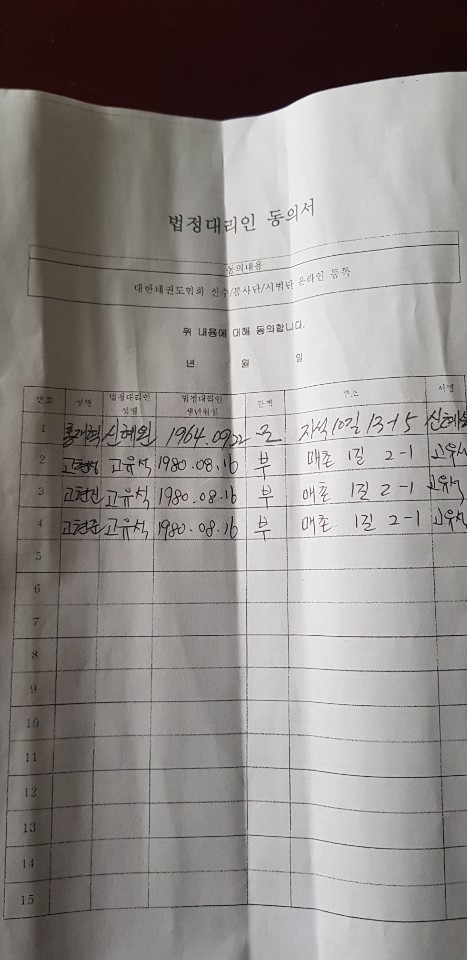 법정대리인 동의서
동의내용
대한태권도협회 선수/봉사단/시범단 온라인 등록
위 내용에 대해 동의합니다.
년 월 일
번호 성명 법정대리인 성명 법정대리인 생년월일 관계 주소 서명
1 홍재혁 신혜원 1964.09.22 모 지석10길 13-15
2 고유석 1980.08.16 부 매촌 1길 2-1 고유석
3 고형진 고유석 1980.08.16 부 매촌 1길 2-1 고유석
4 고형준 고유석 1980.08.16 부 매촌 1길 2-1 고유석
5
6
7
8
9
10
11
12
13
14
15